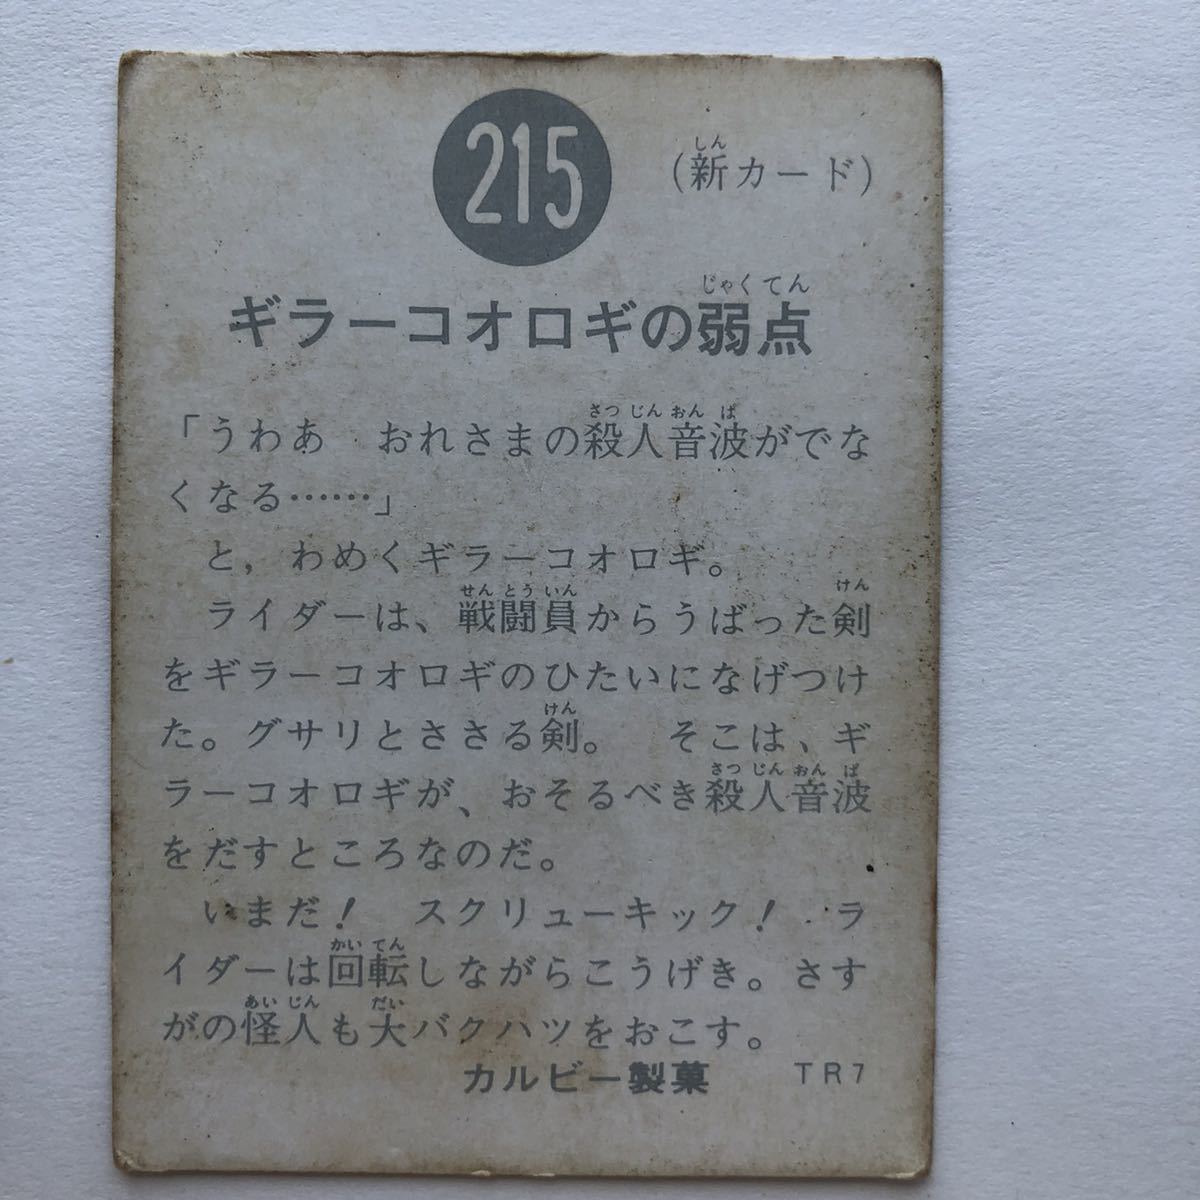 215
(新カード)
しん
ギラーコオロギの弱点
じゃくてん
「うわあ　おれさまの殺人音波がでな
さつじんおんぱ
くなる……」
と，わめくギラーコオロギ。
ライダーは、戦闘員からうばった剣
せんとういん　けん
をギラーコオロギのひたいになげつけ
た。グサリとささる剣。　そこは、ギ
けん
ラーコオロギが、おそるべき殺人音波
さつじんおんぱ
をだすところなのだ。
いまだ！　スクリューキック！　ラ
イダーは回転しながらこうげき。さす
かいてん
がの怪人も大バクハツをおこす。
あいじん　だい
カルビー製菓　TR7